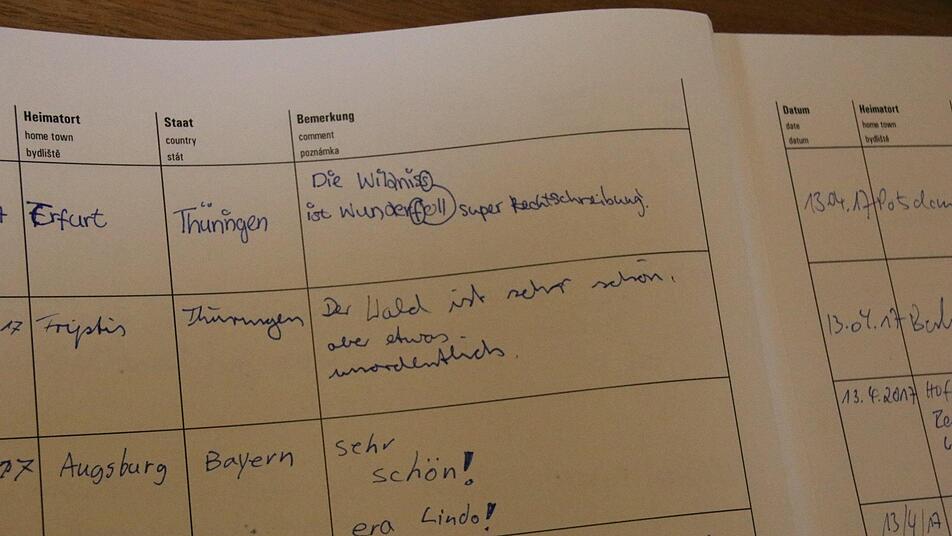 Heimatort
home town
bydliště
Staat
country
stát
Bemerkung
comment
poznámka
7 Erfurt
Thüringen
Die Wildniss
ist wunderfoll super Rechtschreibung.
17 Triptis
Thüringen
Der Wald ist sehr schön.
aber etwas
unordentlich.
17 Augsburg
Bayern
sehr
schön!
era Lindo!
Datum
date
datum
Heimatort
home town
bydliště
13.04.17 Potsdam
13.04.17 Berl
13.4.2017 Hof
13/4/17